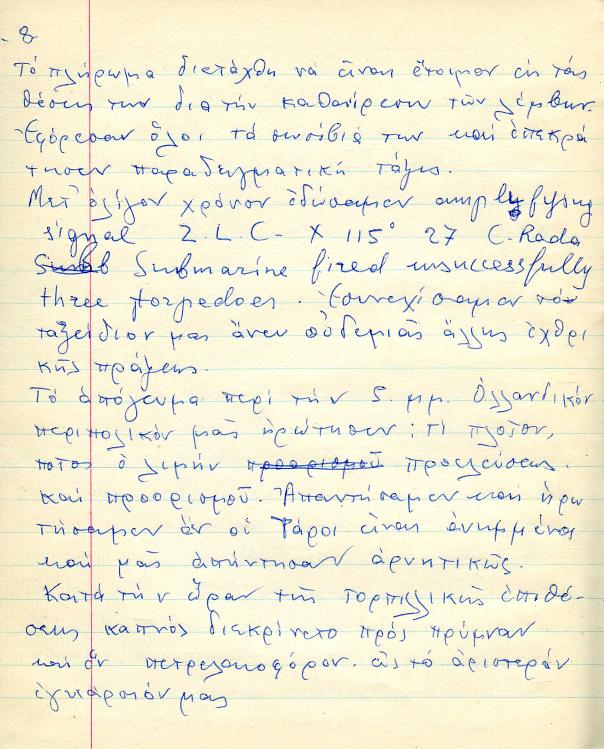 8
Τό πλήρωμα διετάχθη νά εἶναι ἕτοιμον εἰς τάς
θέσεις των διά τήν καθαίρεσιν τῶν λέμβων.
Ἐφόρεσαν ὅλοι τά σωσίβιά των καί ἐπεκρά
τησεν παραδειγματική τάξις.
Μετ' ὀλίγον χρόνον ἐδώσαμεν amplyfying
signal Z.L.C- X 115° 27 C. Rada
Submarine fired unsuccessfully
three torpedoes. Ἐσυνεχίσαμεν τό
ταξείδιον μας ἄνευ οὐδεμιᾶς ἄλλης ἐχθρι
κῆς πράξεως.
Τό ἀπόγευμα περί τήν 5 μμ. Ὁλλανδικόν
περιπολικόν μᾶς ἠρώτησεν; Τί πλοῖον,
ποῖος ὁ λιμήν προσρισμοῦ προελεύσεως.
καί προορισμοῦ. Ἀπαντήσαμεν καί ἠρω
τήσαμεν ἄν οἱ Φάροι εἶναι ἀνημμένοι
καί μᾶς ἀπήντησαν ἀρνητικῶς.
Κατά τήν ὥραν τῆς τορπιλλικῆς ἐπιθέ-
σεως καπνός διεκρίνετο πρός πρύμναν
καί ἕν πετρελαιοφόρον. εἰς τό ἀριστερόν
ἐγκάρσιόν μας